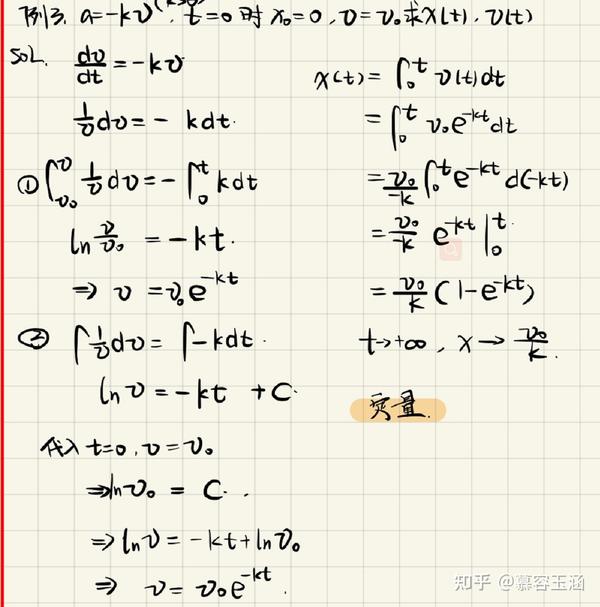 例3. a=-kv(k>0), t=0时 x₀=0, v=v₀求x(t), v(t)
sol. dv/dt = -kv
1/v dv = - kdt.
① ∫_{v₀}^{v} 1/v dv = -∫_0^t kdt
ln v/v₀ = -kt.
⇒ v = v₀e^{-kt}
② ∫ 1/v dv = ∫ -kdt.
ln v = -kt + C.
代入 t=0, v=v₀
⇒ ln v₀ = C.
⇒ ln v = -kt + ln v₀
⇒ v = v₀e^{-kt}.
x(t) = ∫_0^t v(t)dt
= ∫_0^t v₀e^{-kt}dt
= v₀/-k ∫_0^t e^{-kt} d(-kt)
= v₀/-k e^{-kt} |_0^t
= v₀/k (1-e^{-kt})
t→+∞, x→ v₀/k.
量.
知乎 @慕容玉涵